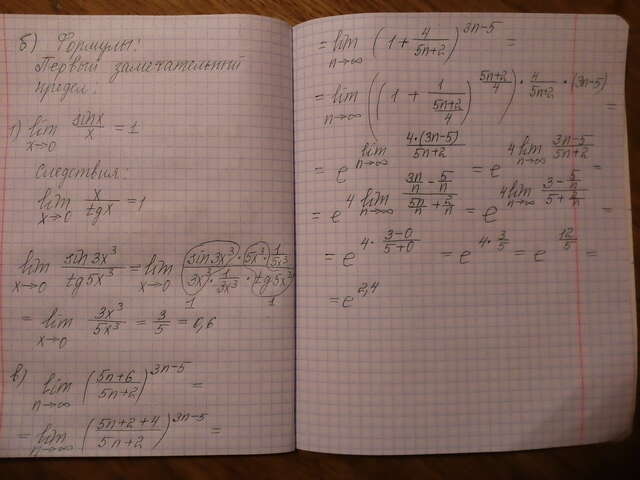 б) Формулы:
Первый замечательный
предел:
1) lim x→0 sinx/x = 1
Следствия:
lim x→0 x/tgx = 1
lim x→0 sin3x³/tg5x³ = lim x→0 (sin3x³ · 5x³ · 1/5x³)/(3x³ · 1/3x³ · tg5x³)
1 1
= lim x→0 3x³/5x³ = 3/5 = 0,6
в) lim n→∞ ((5n+6)/(5n+2))^(3n-5) =
= lim n→∞ ((5n+2+4)/(5n+2))^(3n-5) =
= lim n→∞ (1 + 4/(5n+2))^(3n-5) =
= lim n→∞ ((1 + 1/((5n+2)/4))^((5n+2)/4))^(· 4/(5n+2) · (3n-5)) =
= e^(lim n→∞ (4·(3n-5))/(5n+2)) = e^(4 lim n→∞ (3n-5)/(5n+2)) =
= e^(4 lim n→∞ (3n/n - 5/n)/(5n/n + 2/n)) = e^(4 lim n→∞ (3 - 5/n)/(5 + 2/n)) =
= e^(4 · (3-0)/(5+0)) = e^(4 · 3/5) = e^(12/5) =
= e^(2,4)